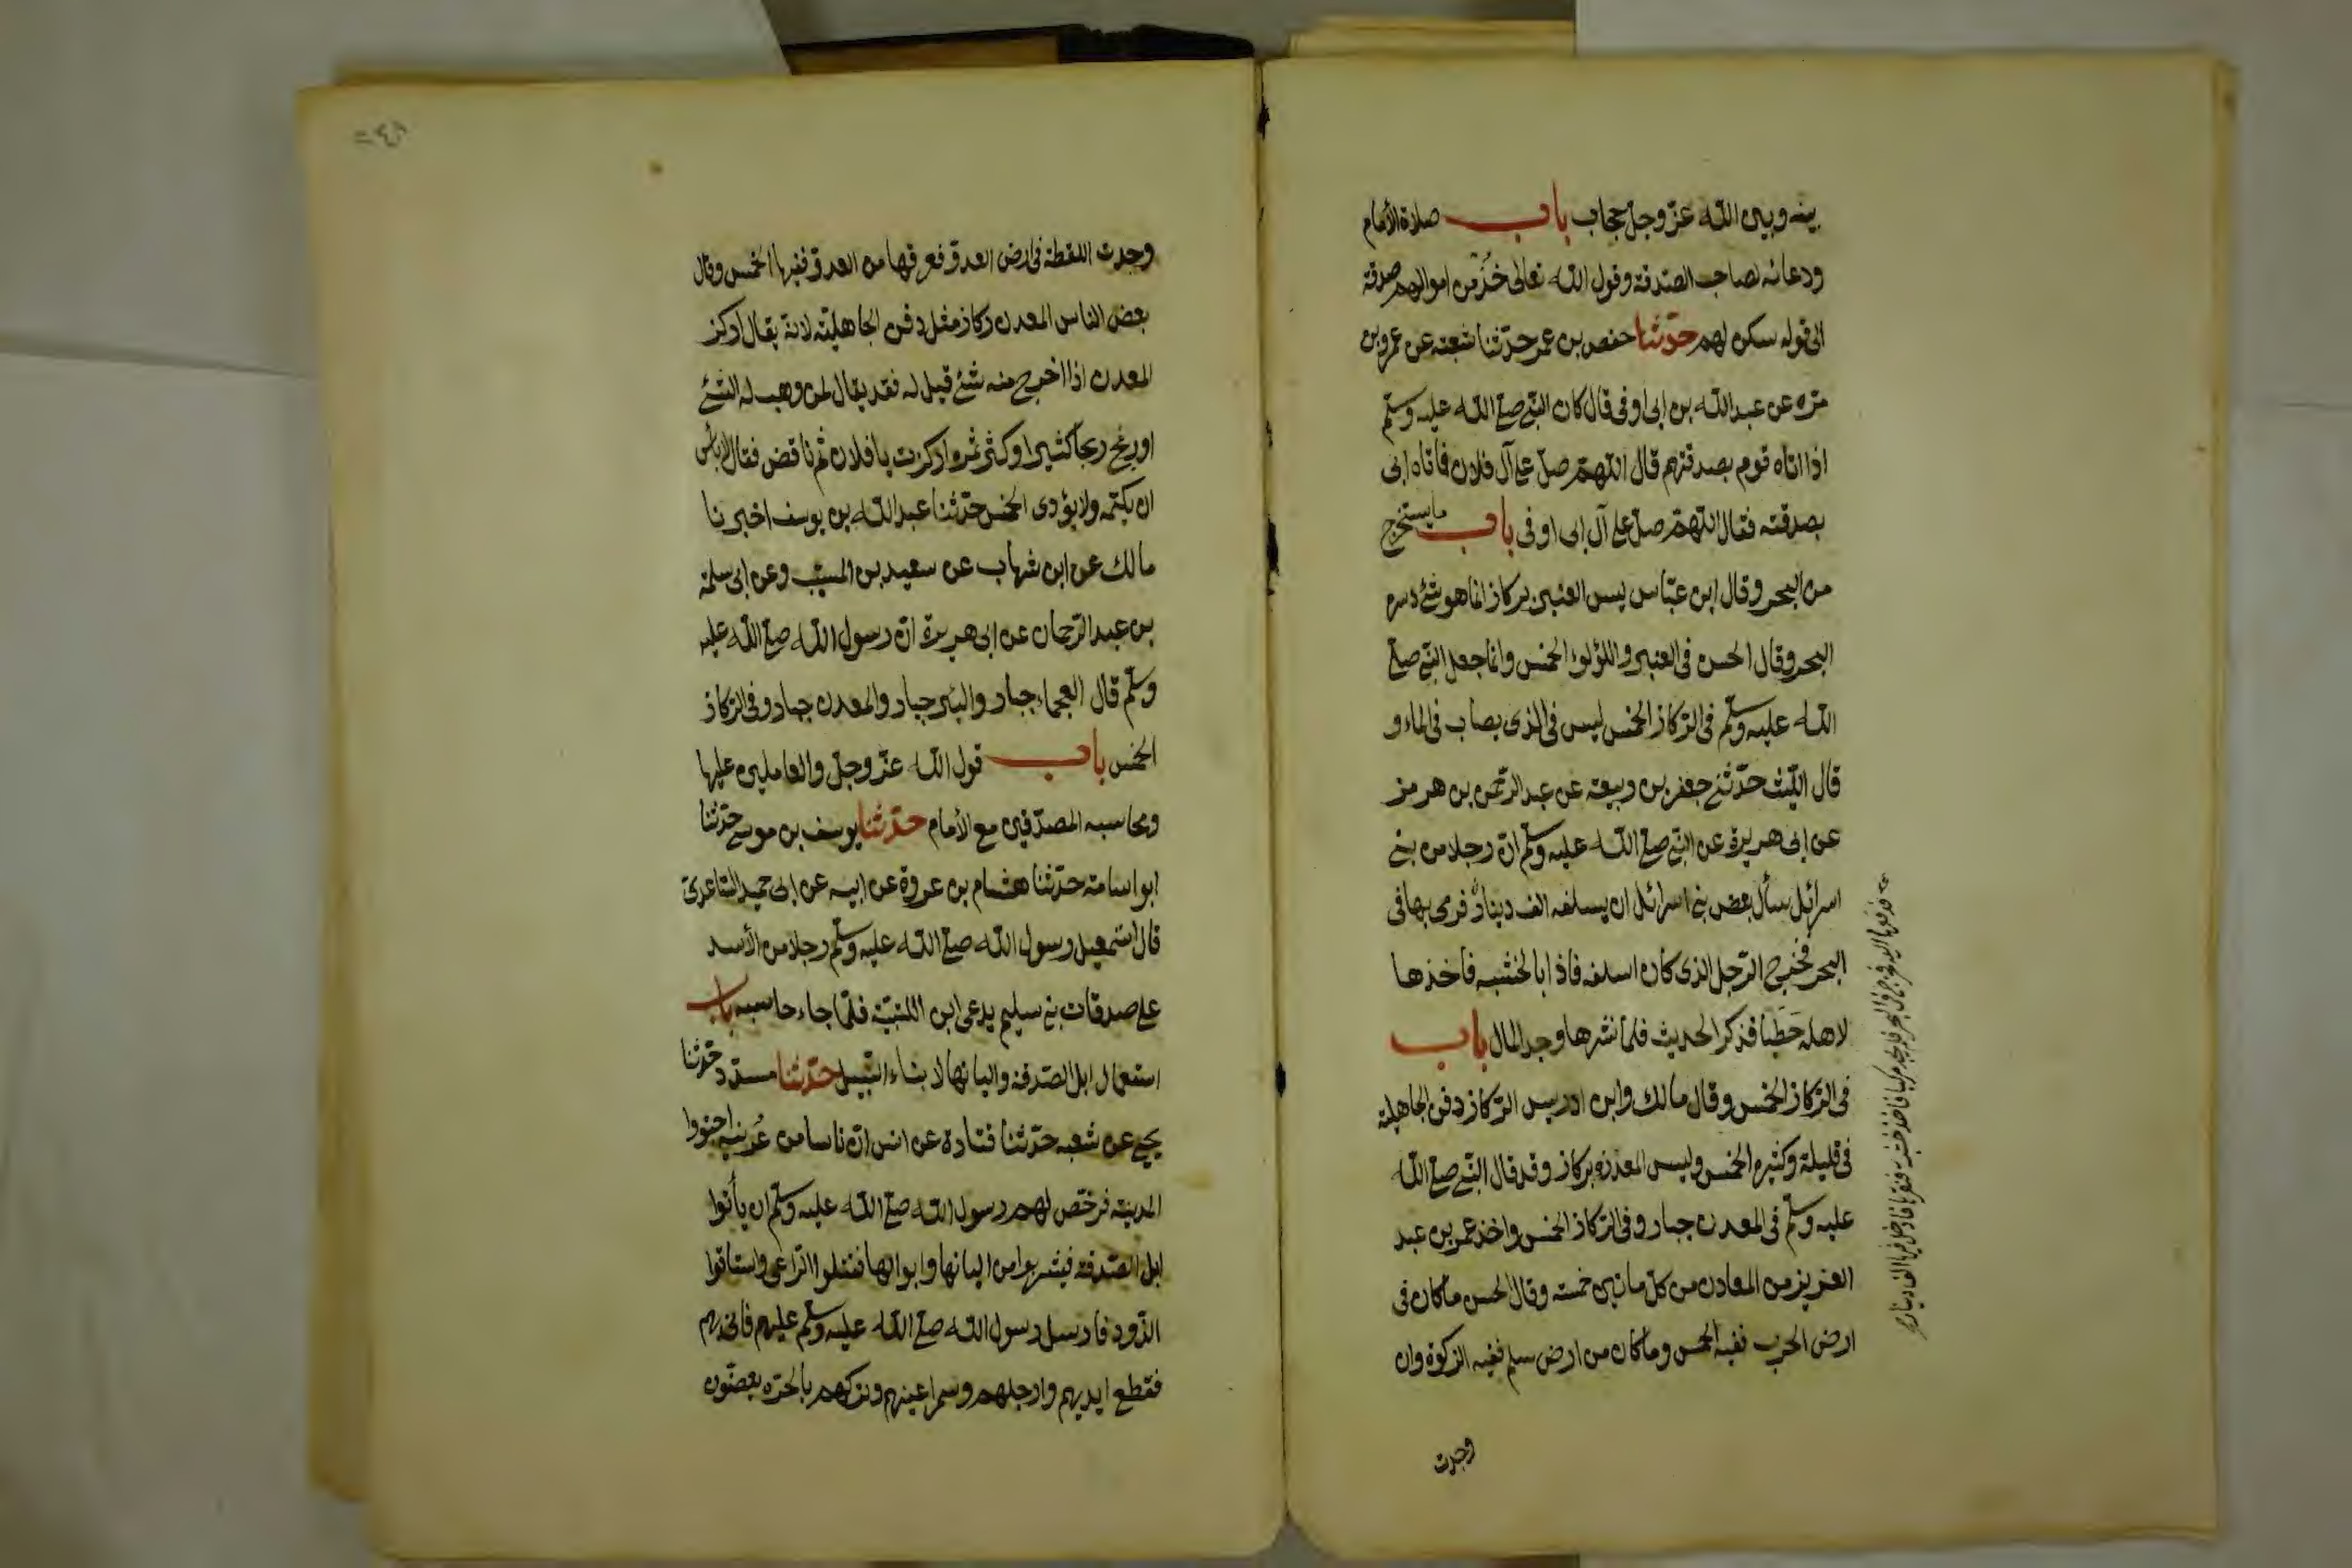 بينه وبين الله عزّ وجلّ حجاب باب صلاة الأمام
ودعائه لصاحب الصّدقة وقول الله تعالى خُذْ من اموالهم صدقة
الى قوله سكن لهم حدّثنا حفص بن عمر حدّثنا شعبه عن عمرو بن
مرّه عن عبد الله بن ابى اوفى قال كان النبّى صلى الله عليه وسلّم
اذا اتاه قوم بصدقتهم قال اللهمّ صلّ على آل فلان فاتاه ابى
بصدقته فقال اللهمّ صلّ على آل ابى اوفى باب ما يستخرج
من البحر وقال ابن عبّاس ليس العنبر بركاز انما هو شئ دسره
البحر وقال الحسن فى العنبر واللؤلوء الخمس وانما جعل النبّى صلى
الله عليه وسلّم فى الرّكاز الخمس ليس فى الذى يصاب فى الماء و
قال اللّيث حدّثنى جعفر بن ربيعة عن عبد الرّحمن بن هرمز
عن ابى هريرة عن النبّى صلى الله عليه وسلّم انّ رجلا من بنى
اسرائيل سأل بعض بنى اسرائيل ان يسلفه الف دينار فرمى بها فى
البحر فخرج الرّجل الذى كان اسلفه فاذا بالخشبه فاخذها
لاهله حَطَبا فذكر الحديث فلمّا نشرها وجد المال باب
فى الرّكاز الخمس وقال مالك وابن ادريس الرّكاز دفن الجاهلية
فى قليلة وكثيره الخمس وليس المعدن بركاز وقد قال النبّى صلى الله
عليه وسلّم فى المعدن جبار وفى الرّكاز الخمس واخذ عمر بن عبد
العزيز من المعادن من كلّ مائتين خمسة وقال الحسن ما كان فى
ارض الحرب ففيه الخمس وما كان من ارض سلم ففيه الزكوة وان
وجدت
فدفعها اليه فخرج فى البحر فلم يجد مركبا فاخذ خشبة فنقرها فادخل فيها الف دينار
وجدت اللقطة فى ارض العدوّ فعرفها من العدوّ ففيها الخمس وقال
بعض الناس المعدن ركاز مثل دفن الجاهليّة لانه يقال اركز
المعدن اذا اخرج منه شئ قيل له فقد يقال لمن وهب له الشئ
او ربح ربحا كثيرا وكثر ثمره اركزت يا فلان ثم ناقض فقال لا بأس
ان يكتمه ولا يؤدى الخمس حدّثنا عبد الله بن يوسف اخبرنا
مالك عن ابن شهاب عن سعيد بن المسيّب وعن ابى سلمة
بن عبد الرّحمان عن ابى هريرة انّ رسول الله صلى الله عليه
وسلّم قال العجماء جبار والبئر جبار والمعدن جبار وفى الرّكاز
الخمس باب قول الله عزّ وجلّ والعاملين عليها
ومحاسبه المصدّقين مع الأمام حدّثنا يوسف بن موسى حدّثنا
ابو اسامة حدّثنا هشام بن عروة عن ابيه عن ابى حميد السّاعدىّ
قال استمعيل رسول الله صلى الله عليه وسلّم رجلا من الأسد
على صدقات بنى سليم يدعى ابن اللتبيّة فلمّا جاء حاسبه باب
استعمال ابل الصّدقة والبانها لابناء السّبيل حدّثنا مسدّد حدّثنا
يحيى عن شعبه حدّثنا قتادة عن انس انّ ناسا من عُرينه اجتووا
المدينة فرخّص لهم رسول الله صلى الله عليه وسلّم ان يأتوا
ابل الصّدقة فيشربوا من البانها وابوالها فقتلوا الرّاعى واستاقوا
الذّود فارسل رسول الله صلى الله عليه وسلّم عليهم فاتى بهم
فقطع ايديهم وارجلهم وسمر اعينهم وتركهم بالحرّه يعضّون